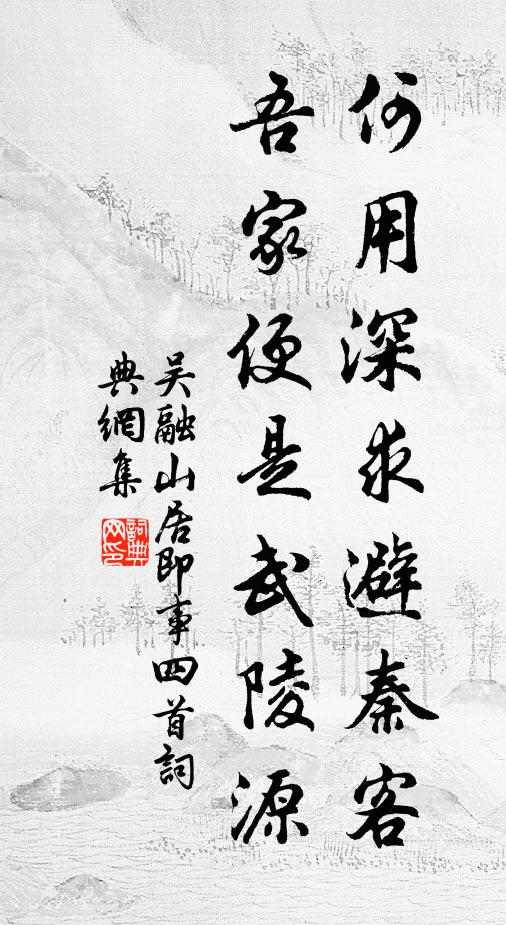 何用深求避秦客
吾家便是武陵源
吴融山居即事四首詞
典網集
詞典
网印